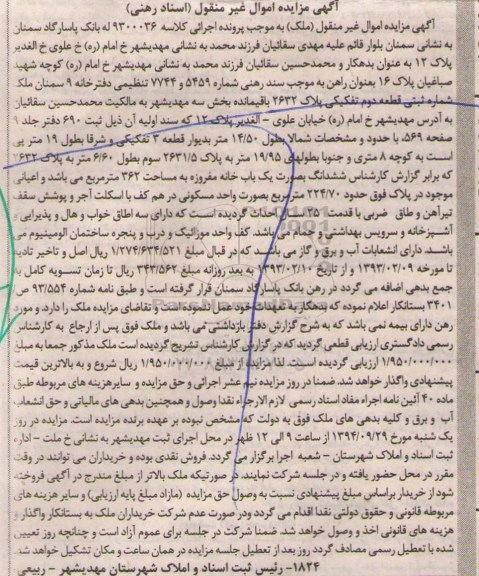 آگهی مزایده اموال غیر منقول (اسناد رهنی)
آگهی مزایده اموال غیر منقول (ملک) به موجب پرونده اجرائی کلاسه ۹۳۰۰۰۳۶ له بانک پاسارگاد سمنان
به نشانی سمنان بلوار قائم علیه مهدی سقائیان فرزند محمد به نشانی مهدیشهر خ امام (ره) خ علوی خ الغدیر
پلاک ۱۲ به عنوان بدهکار و محمدحسین سقائیان فرزند محمد به نشانی مهدیشهر خ امام (ره) کوچه شهید
صباغیان پلاک ۱۶ بعنوان راهن به موجب سند رهنی شماره ۵۴۵۹ و ۷۷۴۴ تنظیمی دفترخانه ۹ سمنان ملک
شماره ثبتی قطعه دوم تفکیکی پلاک ۲۶۳۲ باقیمانده بخش سه مهدیشهر به مالکیت محمدحسین سقائیان
به آدرس مهدیشهر خ امام (ره) خیابان علوی - الغدیر پلاک ۱۲ که سند اولیه آن ذیل ثبت ۶۹۰ دفتر جلد ۹
صفحه ۵۶۹، با حدود و مشخصات شمالا بطول ۱۴/۵۰ متر بدیوار قطعه ۳ تفکیکی و شرقا بطول ۱۹ متر پی
است به کوچه ۸ متری و جنوبا بطولهای ۱۹/۹۵ متر به پلاک ۲۶۳۱/۵ سوم بطول ۶/۶۰ متر به پلاک ۲۶۳۲
که برابر گزارش کارشناس ششدانگ بصورت یک باب خانه مفروزه به مساحت ۳۶۲ مترمربع می باشد و اعیانی
موجود در پلاک فوق حدود ۲۲۴/۷۰ مترمربع بصورت واحد مسکونی در هم کف با اسکلت آجر و پوشش سقف
تیرآهن و طاق ضربی با قدمت ۲۵ سال احداث گردیده است که دارای سه اطاق خواب و هال و پذیرایی و
آشپزخانه و سرویس بهداشتی و حمام می باشد. کف واحد موزائیک و درب و پنجره ساختمان الومینیوم می
باشد. دارای انشعابات آب و برق و گاز می باشند که در قبال مبلغ ۱/۲۷۴/۶۳۴/۵۲۱ ریال اصل و تاخیر تادیه
تا مورخه ۱۳۹۳/۰۲/۰۹ و از تاریخ ۱۳۹۳/۰۲/۱۰ به بعد روزانه مبلغ ۳۴۳/۵۶۲ ریال تا زمان تسویه کامل به
جمع بدهی اضافه می گردد در رهن بانک پاسارگاد سمنان قرار گرفته است و طبق نامه شماره ۹۳/۵۵۴ ص
۳۴۰۱ بستانکار اعلام نموده که بدهکار به تعهدات خود عمل ننموده است و تقاضای مزایده ملک را دارد. و مورد
رهن دارای بیمه نمی باشد که به شرح گزارش دفتر بازداشتی نمی باشد و ملک فوق پس از ارجاع به کارشناس
رسمی دادگستری ارزیابی قطعی گردید که در گزارش کارشناس تشریح گردیده است ملک مذکور جمعا به مبلغ
۱/۹۵۰/۰۰۰/۰۰۰ ارزیابی گردیده است. لذا مزایده از مبلغ ۱/۹۵۰/۰۰۰/۰۰۰ ریال شروع و به بالاترین قیمت
پیشنهادی واگذار خواهد شد. ضمنا در روز مزایده نیم عشر اجرائی و حق مزایده و سایرهزینه های مربوطه طبق
ماده ۴۰ آئین نامه اجراء مفاد اسناد رسمی لازم الاجراء نقدا وصول و همچنین بدهی های مالیاتی و حق انشعاب
آب و برق و کلیه بدهی های ملک فوق به دولت که مشخص نبوده بر عهده برنده مزایده است. مزایده در روز
یک شنبه مورخ ۱۳۹۴/۰۹/۲۹ از ساعت ۹ الی ۱۲ ظهر در محل اجرای ثبت مهدیشهر به نشانی خ ملت - اداره
ثبت اسناد و املاک شهرستان - شعبه اجرا برگزار می گردد. فروش نقدی بوده و خریداران می توانند در وقت
مقرر در محل حضور یافته و در جلسه شرکت نمایند. در صورتیکه ملک بالاتر از مبلغ مندرج در آگهی فروخته
شود از خریدار براساس مبلغ پیشنهادی نسبت به وصول حق مزایده (مازاد مبلغ پایه ارزیابی) و سایر هزینه های
مربوطه قانونی و حقوق دولتی نقدا اقدام می گردد ودر صورت عدم شرکت خریداران ملک به بستانکار واگذار و
هزینه های قانونی اخذ و وصول خواهد شد. ضمنا شرکت در جلسه برای عموم آزاد است و چنانچه روز تعیین
شده با تعطیل رسمی مصادف گردد روز بعد از تعطیل جلسه مزایده در همان ساعت و مکان تشکیل خواهد شد.
۱۸۲۴- رئیس ثبت اسناد و املاک شهرستان مهدیشهر - ربیعی